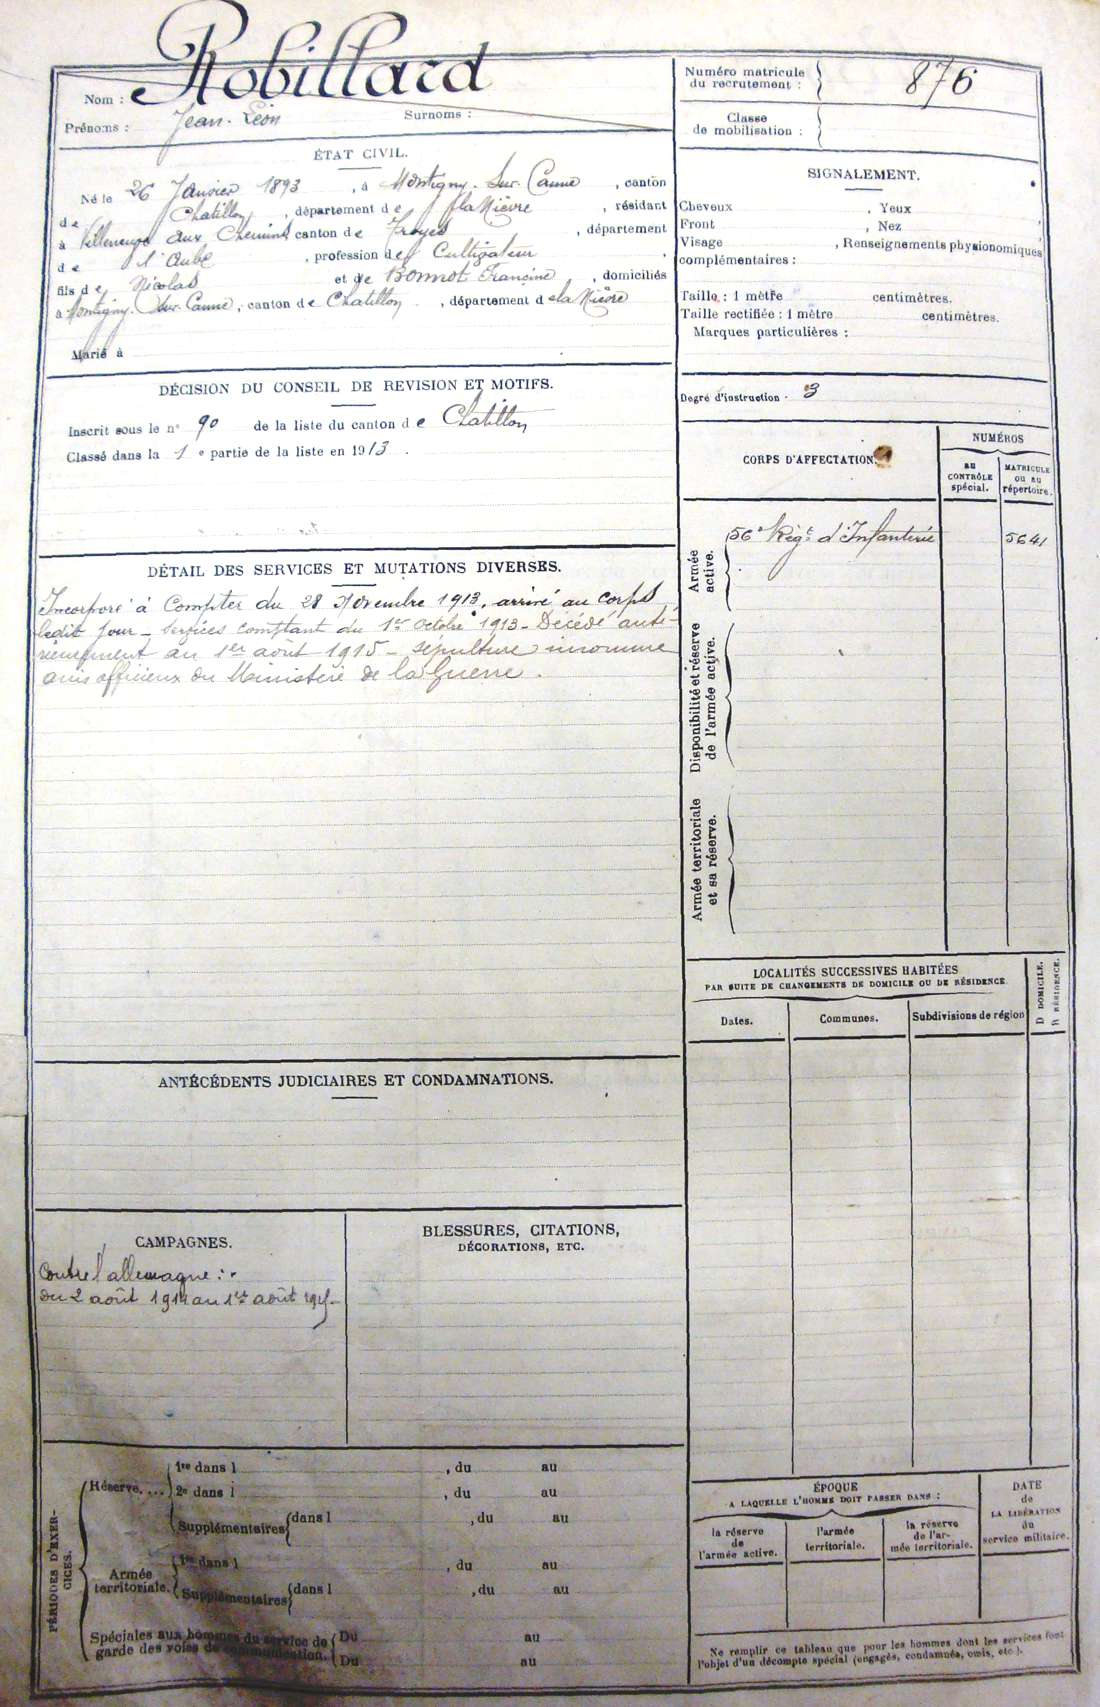 Nom : Robillard
Prénoms : Jean-Léon Surnoms :
ÉTAT CIVIL.
Né le 26 Janvier 1893, à Montigny-sur-Canne, canton
de Chatillon, département de la Nièvre, résidant
à Villeneuve aux Chemins, canton de Troyes, département
de l'Aube, profession de Cultivateur,
fils de Nicolas et de Bonnot Francine, domiciliés
à Montigny-sur-Canne, canton de Chatillon, département de la Nièvre
Marié à
DÉCISION DU CONSEIL DE REVISION ET MOTIFS.
Inscrit sous le n° 90 de la liste du canton de Chatillon
Classé dans la 1e partie de la liste en 1913.
DÉTAIL DES SERVICES ET MUTATIONS DIVERSES.
Incorporé à Compter du 28 Novembre 1913, arrivé au corps
ledit jour - services comptant du 1er Octobre 1913 - Décédé anté-
rieurement au 1er août 1915 - sépulture innomme
avis officieux du Ministère de la Guerre.
ANTÉCÉDENTS JUDICIAIRES ET CONDAMNATIONS.
CAMPAGNES.
Contre l'allemagne :
du 2 août 1914 au 1er août 1915 -
BLESSURES, CITATIONS,
DÉCORATIONS, ETC.
PÉRIODES D'EXER-
CICES.
Réserve....
1re dans l , du au
2e dans l , du au
Supplémentaires dans l , du au
Armée
territoriale.
1re dans l , du au
Supplémentaires dans l , du au
Spéciales aux hommes du service de
garde des voies de communication.
Du au
Du au
Numéro matricule
du recrutement : 876
Classe
de mobilisation :
SIGNALEMENT.
Cheveux , Yeux
Front , Nez
Visage , Renseignements physionomiques
complémentaires :
Taille : 1 mètre centimètres.
Taille rectifiée : 1 mètre centimètres.
Marques particulières :
Degré d'instruction 3
CORPS D'AFFECTATION.
NUMÉROS
au
CONTRÔLE
spécial.
MATRICULE
ou au
répertoire.
Armée
active.
56e Régt d'Infanterie 5641
Disponibilité et réserve
de l'armée active.
Armée territoriale
et sa réserve.
LOCALITÉS SUCCESSIVES HABITÉES
PAR SUITE DE CHANGEMENTS DE DOMICILE OU DE RÉSIDENCE
D DOMICILE.
R RÉSIDENCE.
Dates. Communes. Subdivisions de région
ÉPOQUE
A LAQUELLE L'HOMME DOIT PASSER DANS :
la réserve
de
l'armée active.
l'armée
territoriale.
la réserve
de l'ar-
mée territoriale.
DATE
de
LA LIBÉRATION
du
service militaire.
Ne remplir ce tableau que pour les hommes dont les services font
l'objet d'un décompte spécial (engagés, condamnés, omis, etc.).